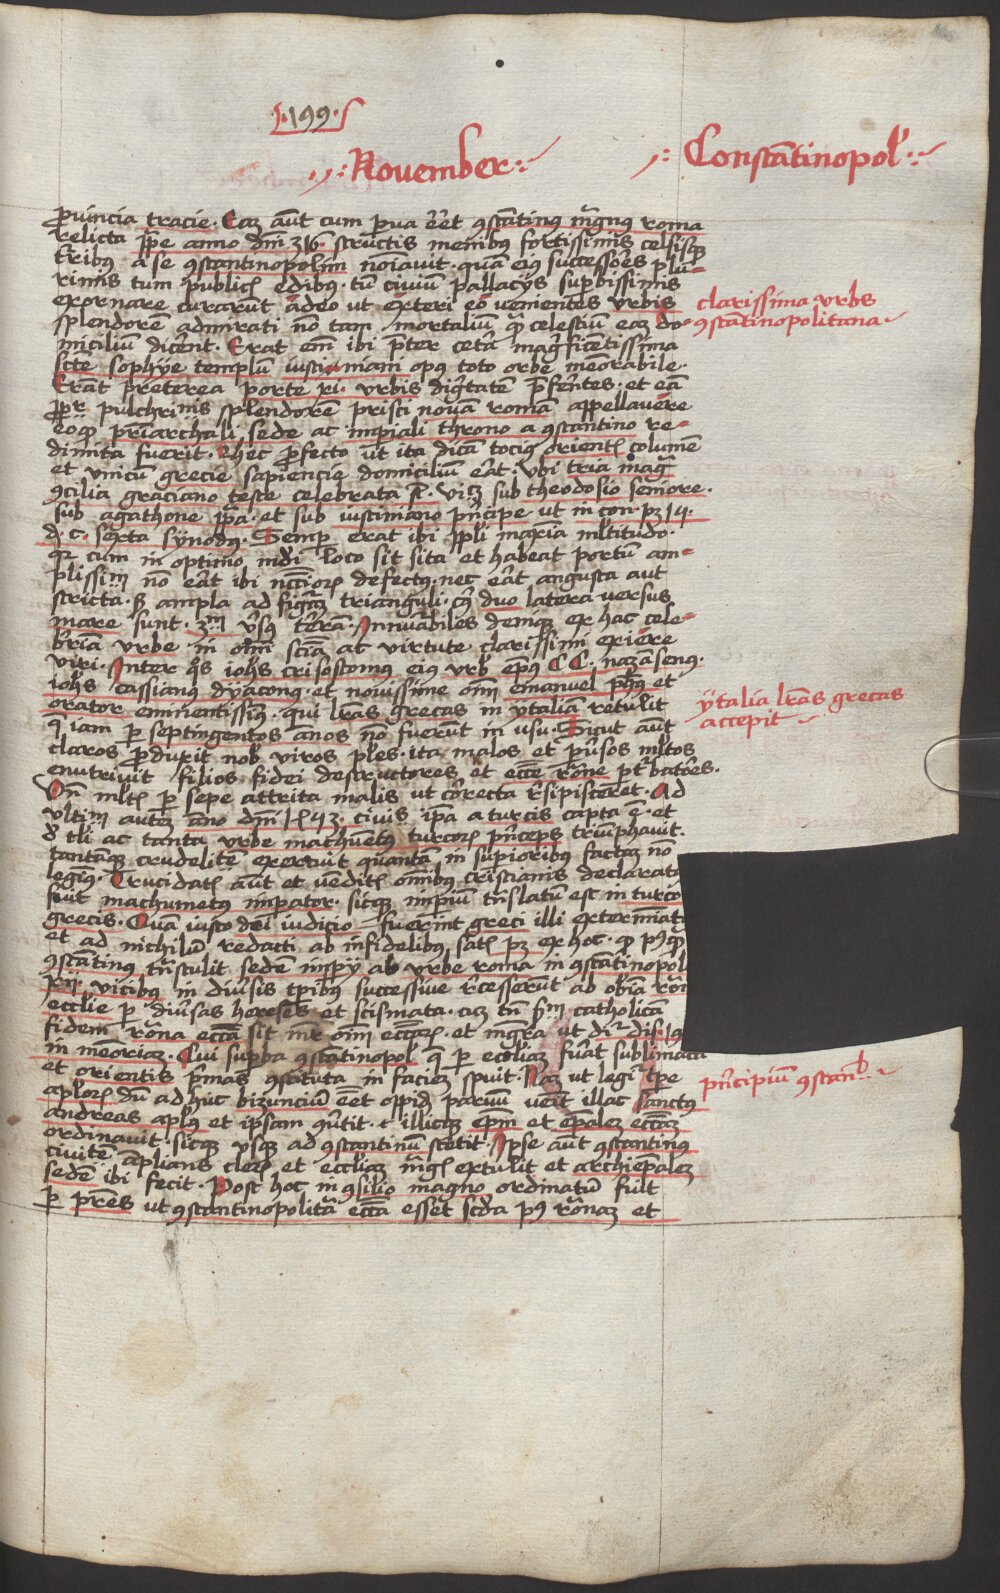 ·199·
·:November:·
·: Constantinopol':·
Prouincia tracie. Eaz aūt cum pua eēt ꝯstātinus mgnus roma
relicta ꝓpe anno dnī 316 structis menibus fortissimis celsisqꝫ
t'ribus a se ꝯstantinopolim noīauit. quā eius successores plu=
rimis tum publicis edibus. tū ciuiū pallacijs supbissimis
exornare curarūt adeo ut exteri eo uenientes urbis
splendorē admirati nō tam mortaliū qꝫ celestium eaz do=
miciliū dicerēt. Erat em̄ ibi pter cetera magficētissima
scte sophye templū iustiniani opus toto orbe meōrabile.
Erāt preterea porte xi. urbis digtatē pferētes. et eā
ꝓpt pulchrinis splendorē prisci nouā romā appellauere
eoqꝫ priarchali sede ac impiali throno a ꝯstantino re=
dimita fuerit. Hec ꝓfecto ut ita dicā tocius orientis columē
et unicū grecie sapiencie domiciliū erat. ubi tria mag
ꝯcilia graciano teste celebrata sūt. vicꝫ sub theodosio seniore.
sub agathone ppa. et sub iustiniano pncipe ut in con. pꝫ 14.
d. c. sexta synodus. Semp erat ibi ppli maxīa mltitudo.
qꝛ cum in optimo mdi loco sit sita et habeat portū am=
plissim nō erat ibi nccioꝝ defectus. nec erat angusta aut
stricta. sꝫ ampla ad figurā trianguli. cuius duo latera versus
mare sunt. 3m vsus terrā. Innuābiles deniqꝫ ex hac cele=
berima urbe in omi scīa ac virtute clarissimi exiere
viri. Inter qs iohes crisostomus eius urbis epus CC. nazāsenus.
iohes cassianus dyaconus. et nouissime oīm emanuel phus et
orator eminentissimus. qui lras grecas in ytaliā retulit
q iam p septingentos anos nō fuerūt in usu. Sicut aūt
claros ꝓduxit nob viros plēs. ita malos et pusos mltos
enutriuit filios fidei destructores et ecce rōne pturbatōres.
Vn mltis p sepe attrita malis ut correcta rsipisceret. Ad
ultim autem ano dnī 1453. ciuis ipa a turcis capta ē. et
d tli ac tanta urbe machumetus turcoꝝ pnceps triūphauit.
tantāqꝫ crudelite exercuit quantā in supioribus factaz nō
legius. Trucidatis aūt et uenditis omibus cristianis declaratus
fuit machumetus impator. sicqꝫ impiū tnslatū est in turco
grecis. Quā iusto dei iudicio fuerint greci illi exterminati
et ad nichilū redacti ab infidelibus satis pꝫ ex hoc. qꝫ pꝰqꝫ
ꝯstātinus tnstulit sedē impij ab urbe roma in ꝯstātinopol
xij. vicibus in diuersis tpibus successiue recesserūt ab obīa rom
ecclie p diuersas hereses et scismata. cuz tn pm catholicā
fidem rōna eccā sit mr oīm eccāꝝ. et mgra ut dur dis. 19
in memoriaz. Cui supba ꝯstātinopol q p eccliaz fuat sublimata
et orientis pmas ꝯstituta in faciaz spuit. Naz ut legit tpe
aploꝝ dū ad huc bizunciū eēt oppid paruū uēit illac sanctus
andreas aplus et ipsam ꝯūtit. et illicqꝫ epm et epales eccāz
ordinauit. sicqꝫ usqꝫ ad ꝯstantinū stetit. Ipse aūt ꝯstantinus
ciuitē āplians cleꝝ et eccliaz mgis extulit et archiepalez
sedē ibi fecit. Post hoc in ꝯsilio magno ordinatū fuit
p pres ut ꝯstantinopolitā eccā esset scda pꝰ rōnaz et
clarissima urbs
ꝯstātinopolitana
ytalia lras grecas
accepit
pncipiū ꝯstan